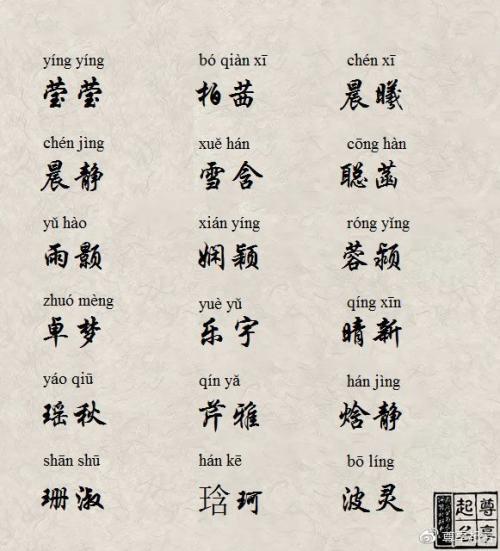 yíng yíng bó qiàn xī chén xī
莹莹 柏茜 晨曦
chén jìng xuě hán cōng hàn
晨静 雪含 聪菡
yǔ hào xián yíng róng yǐng
雨颢 娴颖 蓉颍
zhuó mèng yuè yǔ qíng xīn
卓梦 乐宇 晴新
yáo qiū qín yǎ hán jìng
瑶秋 芹雅 焓静
shān shū hán kē bō líng
珊淑 琀珂 波灵
尊亨
起名